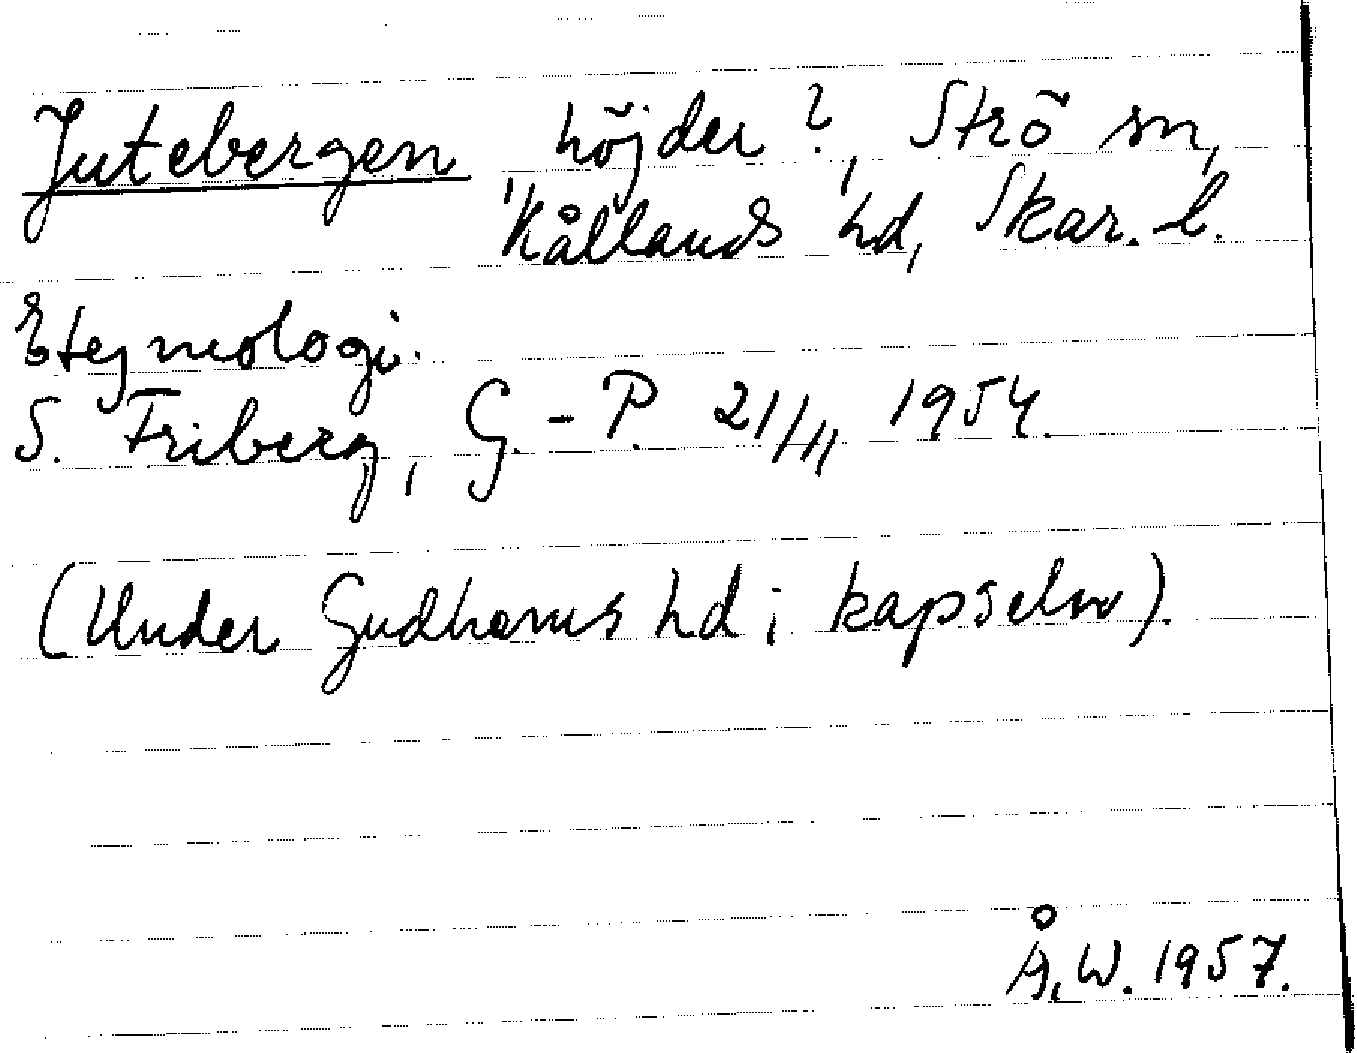 Jutebergen höjder?, Strö sn,
Kållands hd, Skar. l.
Etymologi.
S. Friberg, G.-P. 21/11, 1954.
(Under Gudhems hd i kapseln).
Å.W. 1957.